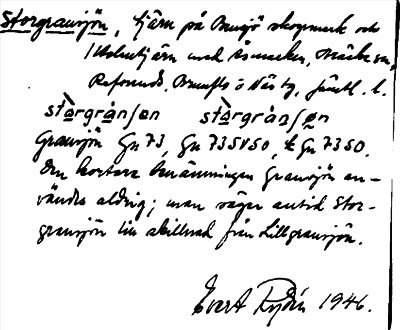 Storgransjön, tjärn på Bensjö skogsmark och
Holmtjärn med Åsmarken, Märkesm,
Refsunds, Brunflo ö Västg, Jämtl. l.
stòrgrånʃøn stòrgrånʃøn
Gransjön Gu 73, Gu 735V50, Gu 7350.
Den kortare benämningen Gransjön an-
vändes aldrig; man säger alltid Stor-
gransjön till skillnad från Lillgransjön.
Evert Rydén 1946.